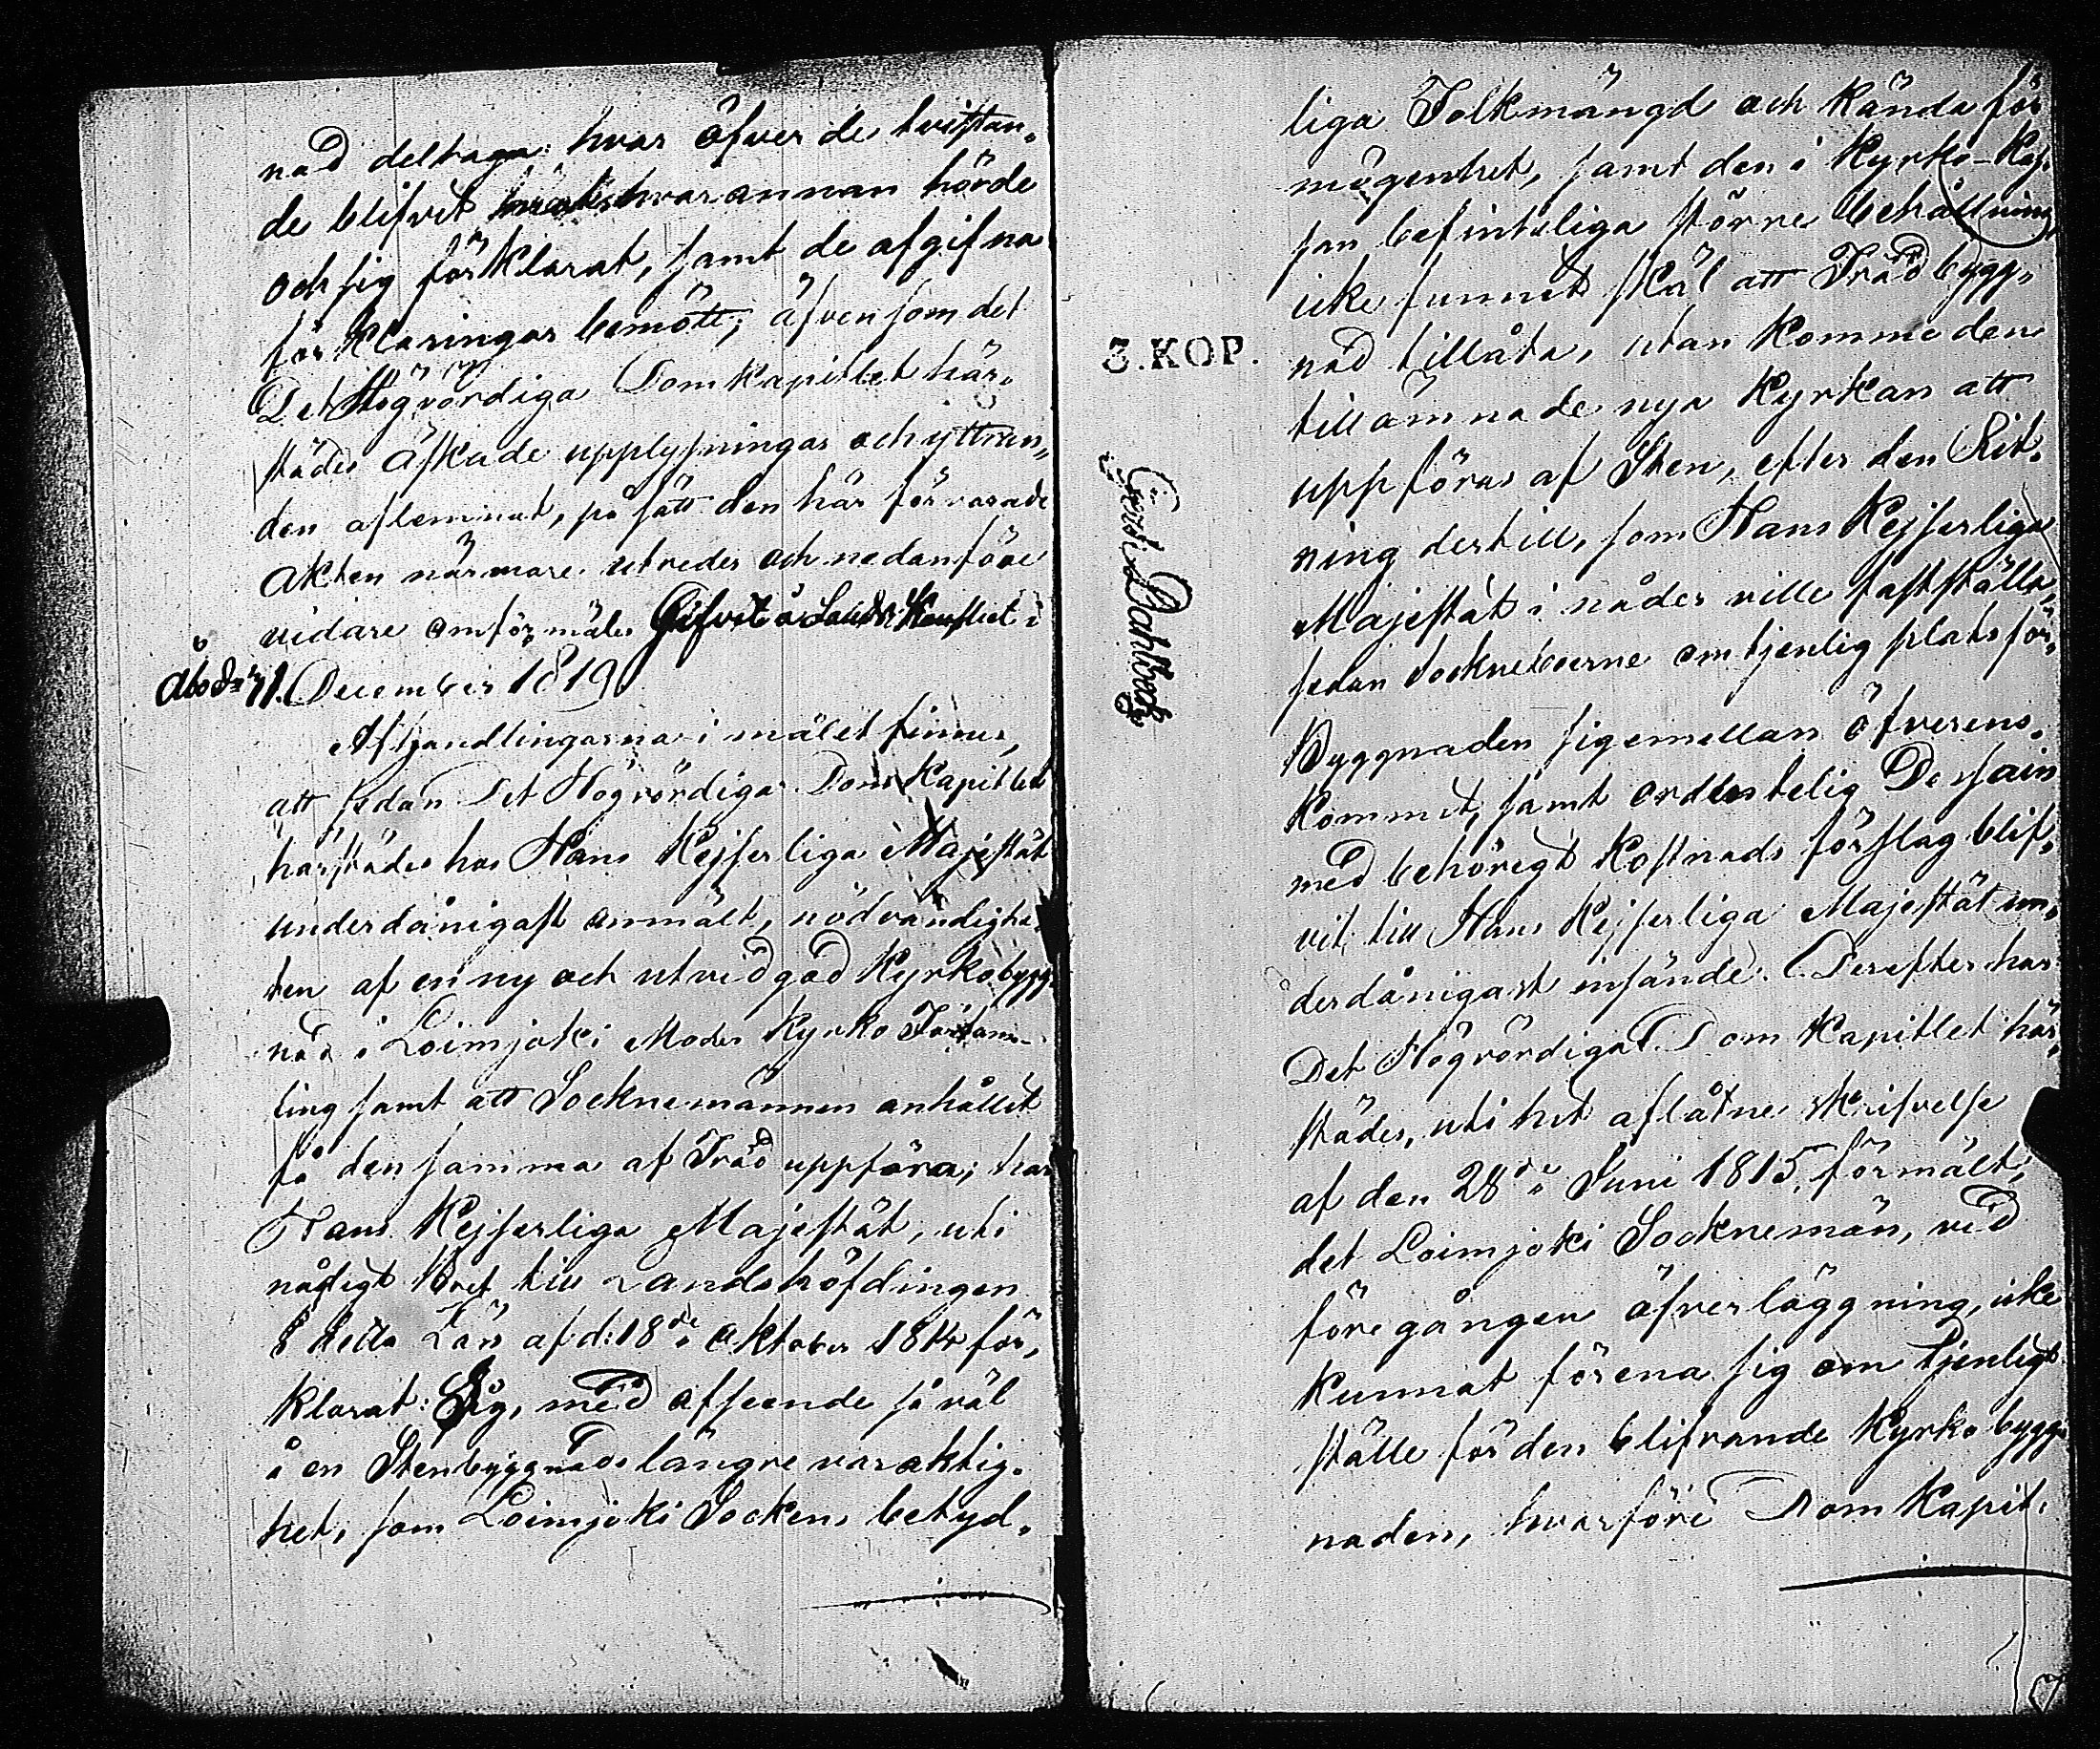 nad deltaga: hvar öfver de tvistan„
de blifvit hvarannan hörde
och sig förklarat, samt de afgifna
förklaringar bemött; äfven som det
Det Högvördiga Domkapitlet här„
städes äskade upplysningar och yttran„
den aflemnat, på sätt den här förvarade
Akten närmare utreder och nedanföre
vidare omförmäles Gifvit å Lands Kansliet i
Åbo d: 11. December 1819.
Afhandlingarna i målet finnes,
att sedan Det Högvördiga Dom Kapitlet
härstädes hos Hans Kejserliga Majestät
underdånigast anmält, nödvändighe„
ten af en ny och utvidgad Kyrkobygg„
nad i Loimjoki Moder Kyrko Församl„
ling samt att Socknemännen anhållit
få densamma af Träd uppföra; har
Hans Kejserliga Majestät, uti
nådigt Bref till Landshöfdingen
i detta Län af d: 18de Oktober 1814 för„
klarat: Sig, med afseende så väl
å en Stenbyggnads längre varaktig„
het, som Loimjoki Sockens betyd„
liga Folkmängd och kända för
mögenhet, samt den i Kyrko-Kas„
san befinteliga större behållning,
icke funnit skäl att Trädbygg„
nad tillåta, utan komme den
tillämnade nya Kyrkan att
uppföras af Sten, efter den Rit„
ning dertill, som Hans Kejserliga
Majestät i nåder ville fastställa,
sedan Sockneboerne om tjenlig plats för„
Byggnaden sigemellan öfverens„
kommit, samt ordentelig Dessain
med behörigt Kostnads förslag blif„
vit till Hans Kejserliga Majestät un„
derdånigast insände. Derefter har
Det Högvördiga Dom Kapitlet här„
städes, uti hit aflåtne skrifvelse
af den 28de Juni 1815, förmält,
det Loimjoki Socknemän, vid
föregången öfverläggning, icke
kunnat förena sig om tjenligt
ställe för den blifvande Kyrkobygg„
naden, hvarföre Dom Kapit„
3.KOP.